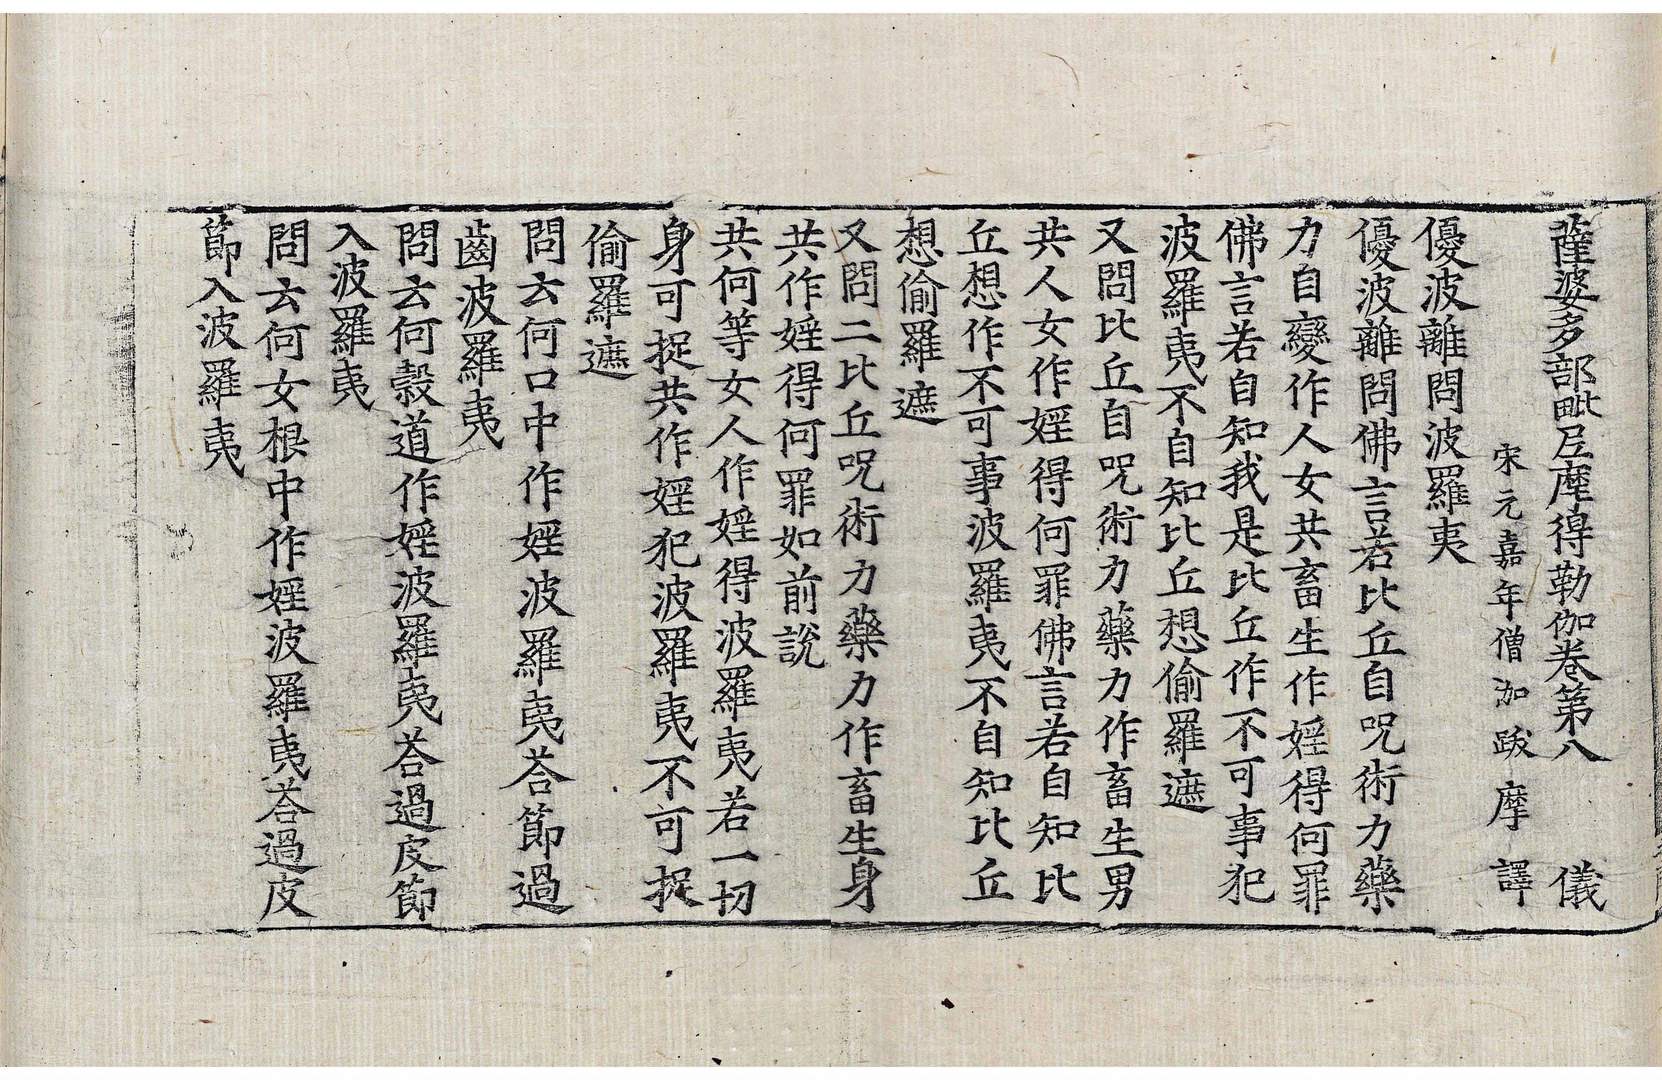 薩婆多部毗尼摩得勒伽卷第八 儀
宋元嘉年僧伽跋摩 譯
優波離問波羅夷
優波離問佛言若比丘自呪術力藥
力自變作人女共畜生作婬得何罪
佛言若自知我是比丘作不可事犯
波羅夷不自知比丘想偷羅遮
又問比丘自呪術力藥力作畜生男
共人女作婬得何罪佛言若自知比
丘想作不可事波羅夷不自知比丘
想偷羅遮
又問二比丘呪術力藥力作畜生身
共作婬得何罪如前說
共何等女人作婬得波羅夷若一切
身可捉共作婬犯波羅夷不可捉
偷羅遮
問云何口中作婬波羅夷荅節過
齒波羅夷
問云何穀道作婬波羅夷荅過皮節
入波羅夷
問云何女根中作婬波羅夷荅過皮
節入波羅夷